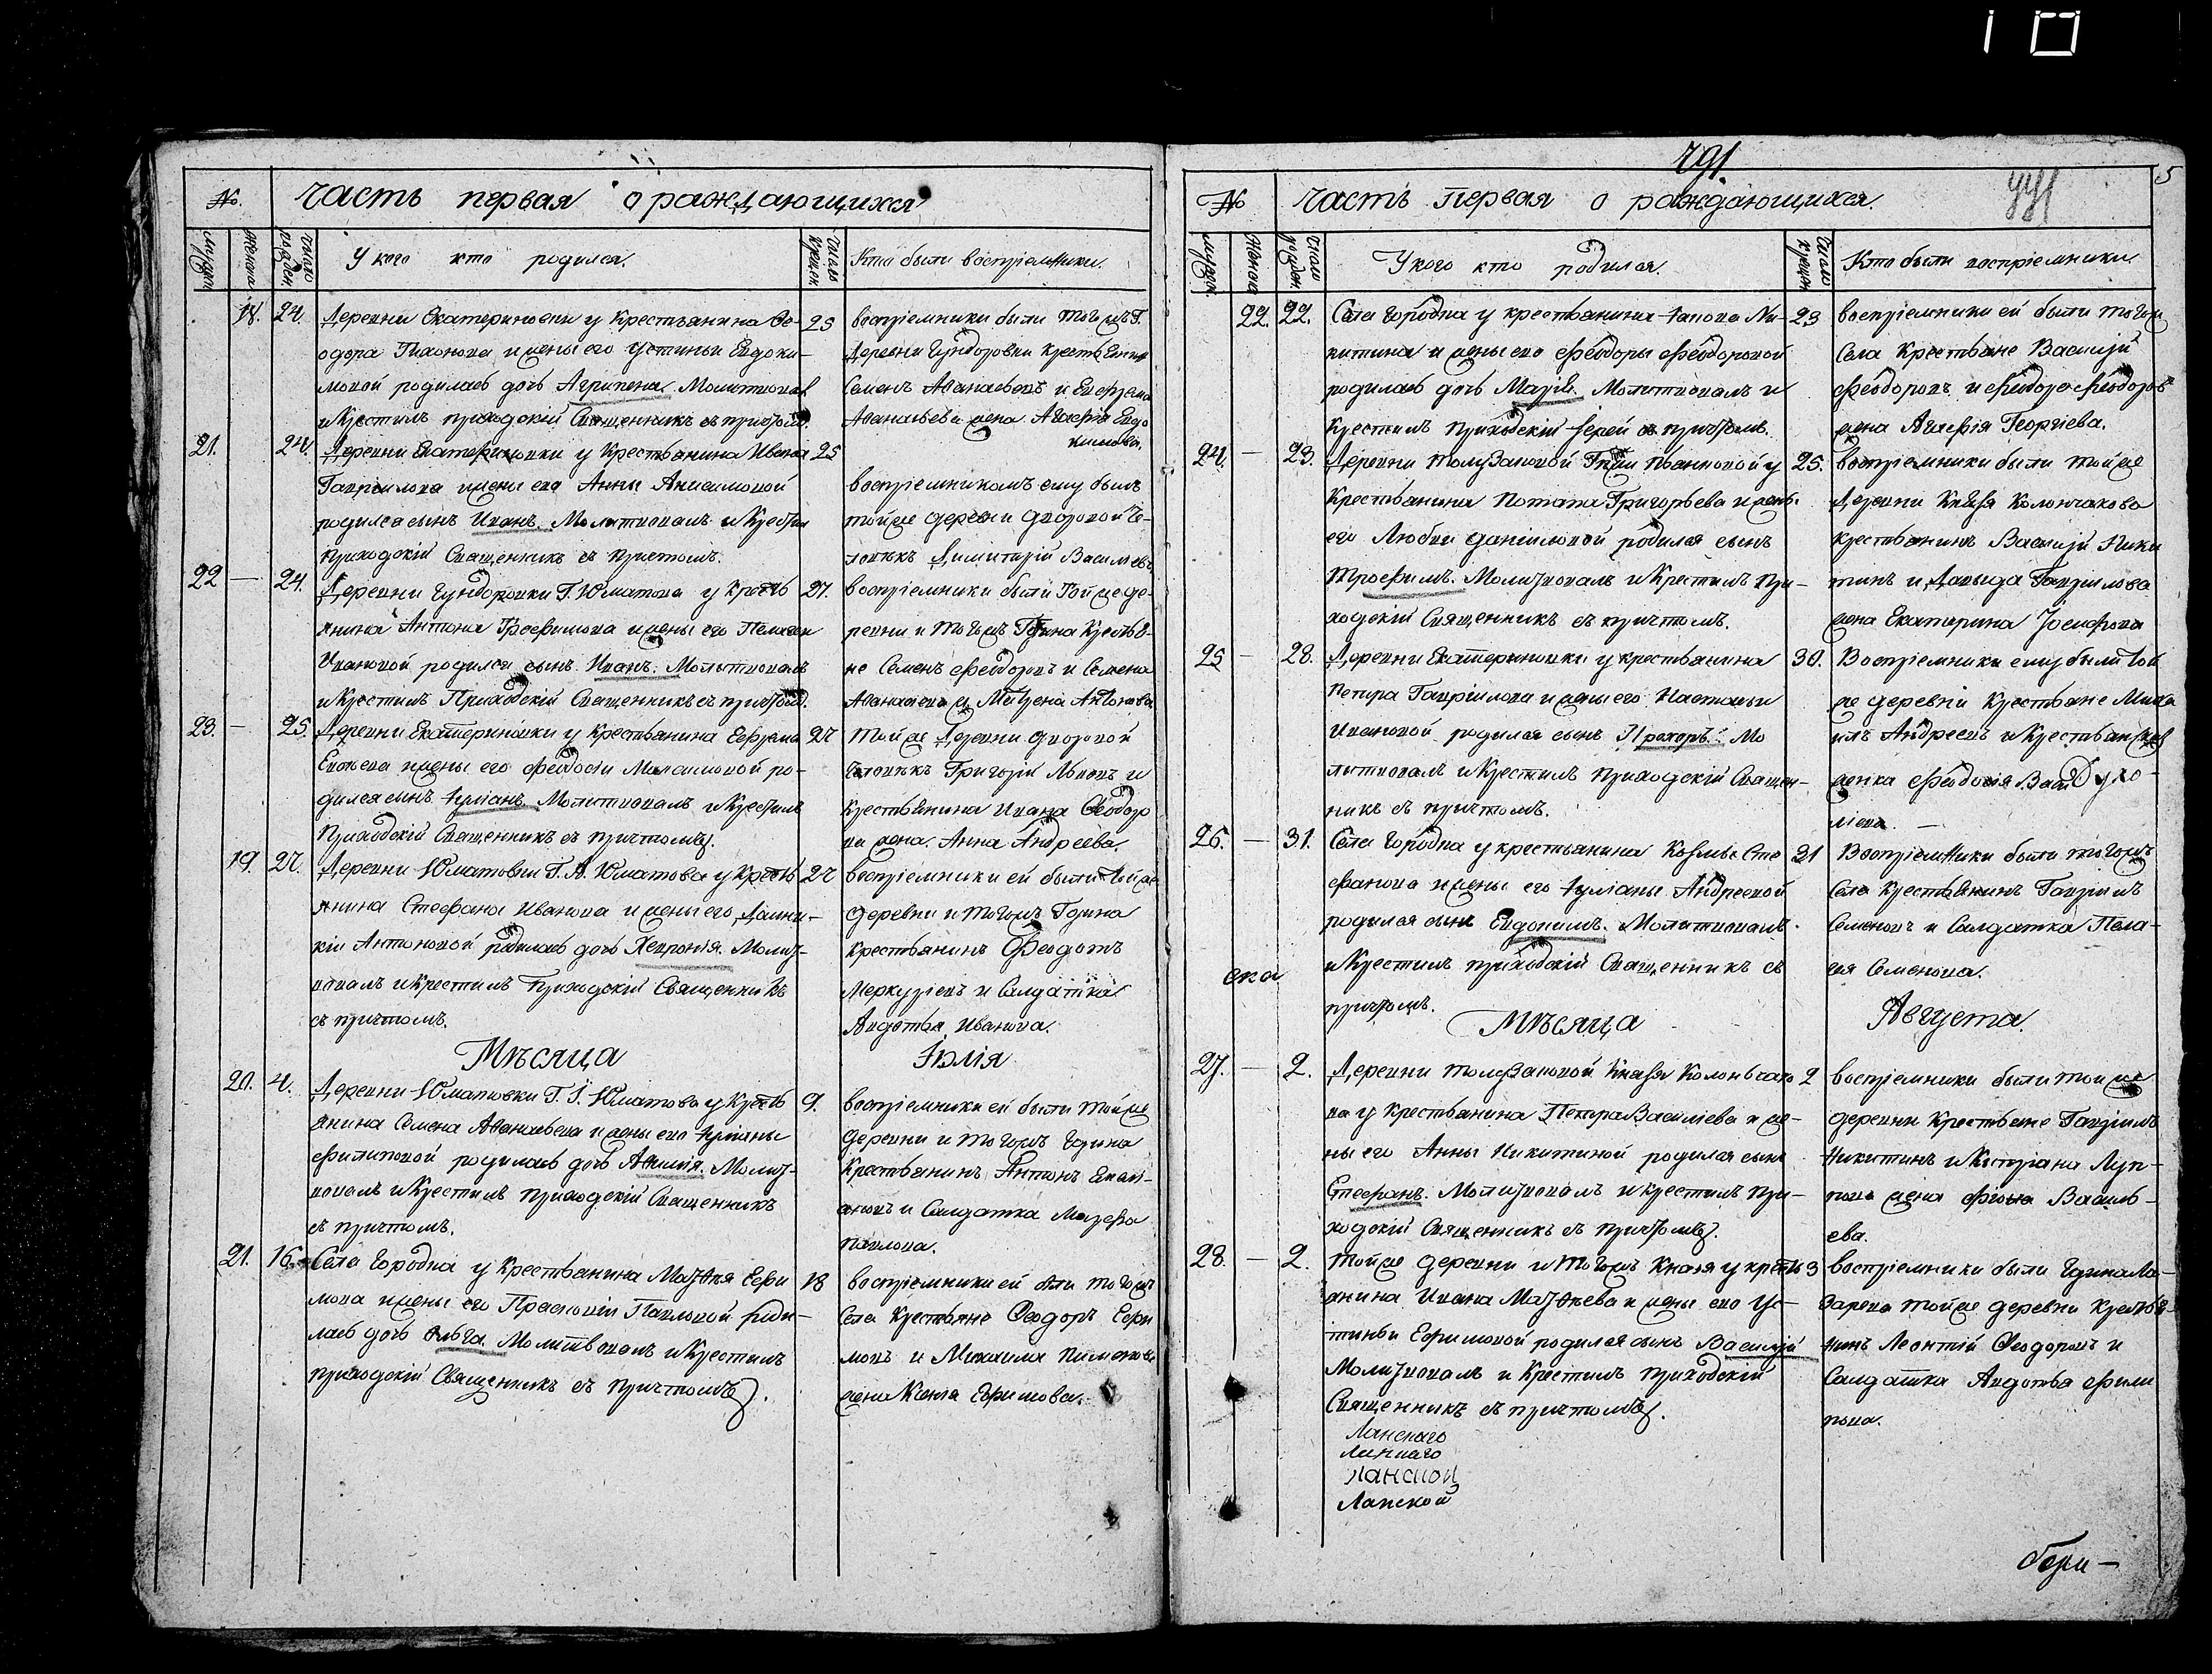 №. Часть первая о раждающихся
мужеск. женска число рожден. У кого кто родился. число крещен. Кто были восприемники.
18. 24. Деревни Екатериновки у Крестьянина Ѳе- 25
одора Тихонова и жены его Устиньи Евдоки-
мовой родилась дочь Агрипена. Молитвовал
и Крестилъ приходскій Священникъ съ причтом.
восприемники были того жъ Г.
Деревни Гундоровки Крестьянинъ
Семенъ Аѳанасьевъ и Ефрема
Аѳанасьева жена Агафія Евдо
кимова.
21. 24. Деревни Екатериновки у Крестьянина Ивана 25
Гаврилова и жены его Анны Анисимовой
родился сынъ Иванъ. Молитвовалъ и Крестил
приходскій Священникъ съ причтомъ.
восприемникомъ ему былъ
той же деревни дворовой Че-
ловѣкъ Димитрій Василіевъ.
22 — 24. Деревни Гундоровки Г. Юматова у Кресть 27.
янина Антона Трофимова и жены его Пелагеи
Ивановой родился сынъ Иванъ. Молитвовалъ
и Крестилъ Приходскій Священникъ съ причтом.
восприемники были Той же де-
ревни и того жъ Г дина Крестья-
не Семенъ Феодоровъ и Семена
Аѳанасьева ж. Матрена Антонова
23. — 25. Деревни Екатериновки у Крестьянина Ефрема 27
его Феодосіи Максимовой ро-
дился сынъ Іуліанъ Молитвовалъ и Крестилъ
Приходскій Священникъ съ причтомъ.
Той же Деревни дворовой
Человѣкъ Григорій Львовъ и
Крестьянина Ивана Ѳеодоро
ва жена. Анна Андреева.
19. 27. Деревни Юматовки Г. А. Юматова у Кресть 27
янина Стефана Иванова и жены его Домни-
кіи Антоновой родилась дочь Хевронія. Молит-
вовалъ и Крестилъ Приходскій Священникъ
съ причтомъ.
восприемники ей были той же
деревни и того жъ Г дина
Крестьянинъ Феодотъ
Меркуріевъ и Салдатка
Авдотья Иванова.
Мѣсяца Іюлія
20. 4. Деревни Юматовки Г. І. Юматова у Кресть 9.
янина Семена Аѳанасьева и жены его Іуліаны
Филиповой родилась дочь Молит-
вовалъ и Крестилъ приходскій Священникъ
съ причтомъ.
восприемники ей были той же
деревни и того жъ Г дина
Крестьянинъ Антонъ
и Салдатка Марфа
Павлова.
21. 16. Села Городка у Крестьянина Матѳея Ефи 18
мова и жены его Прасковіи Павловой роди-
лась дочь Ольга. Молитвовалъ и Крестилъ
приходскій Священникъ съ Причтомъ.
восприемники ей были того жъ
Села Крестьяне Ѳеодоръ Ефи
мовъ и Михаила Пименова
жена Ксенія Ефимова.
791.
5
№ Часть Первая о раждающихся.
мужеск. женска число рожден. У кого кто родился. число крещен. Кто были восприемники
22. 22. Села Городка у крестьянина Іакова Ни- 23
китина и жены его Феодоры Феодоровой
родилась дочь Марія. Молитвовалъ и
Крестилъ Приходскій Іерей съ причтомъ.
восприемники ей были того ж
Села Крестьяне Василій
Феодоровъ и Феодора Феодорова
жена Агафія Георгіева.
24. — 23. Деревни Толузаковой у 25.
Крестьянина Потапа Григорьева и жены
его Любви Даніиловой родился сынъ
Трофимъ. Молитвовалъ и Крестилъ При-
ходскій Священникъ съ причтомъ.
восприемники были той же
Деревни Князя Колончакова
крестьянинъ Василій Ники
тинъ и Давыда Гаврилова
жена Екатерина Іосифова
25 — 28. Деревни Екатериновки у крестьянина 30.
Петра Гавріилова и жены его Настасьи
Ивановой родился сынъ Прохоръ. Мо
литвовалъ и Крестилъ приходскій Священ-
никъ съ причтомъ.
Восприемники ему были той
же деревни Крестьяне Миха
илъ Андреевъ и Крестьянская
девка Феодосія
26. — 31. Села Городка у крестьянина Козмы Сте 31
фанова и жены его Іуліаны Андреевой
родился сынъ Евдокимъ. Молитвовалъ
и Крестилъ приходскій Священникъ съ
причтомъ.
Восприемники были того жъ
Села крестьянинъ Гавріилъ
Семеновъ и Салдатка Пела-
гія Семенова.
ека
Мѣсяца Августа.
27. — 2. Деревни Толузаковой Князя Колончако 2
ва у Крестьянина Петра Василіева и же-
ны его Анны Никитиной родился сынъ
Стефанъ. Молитвовалъ и крестилъ при-
ходскій Священникъ съ причтомъ.
восприемники были той же
деревни Крестьяне Гавріилъ
Никитинъ и Кипріана Луп-
пова жена Василь-
ева.
28. — 2. Той же деревни и того жъ Князя у кресть 3
янина Ивана Матѳеева и жены его Ус-
тиньи Ефимовой родился сынъ Василій
Молитвовалъ и Крестилъ приходскій
Священникъ съ причтомъ.
восприемники были Г дина Ла-
зарева той же деревни Крестья-
нинъ Леонтій Ѳеодоровъ и
Салдатка Авдотья Фили
пова.
Ланскаго
Ланскаго
Ланской
Ланской